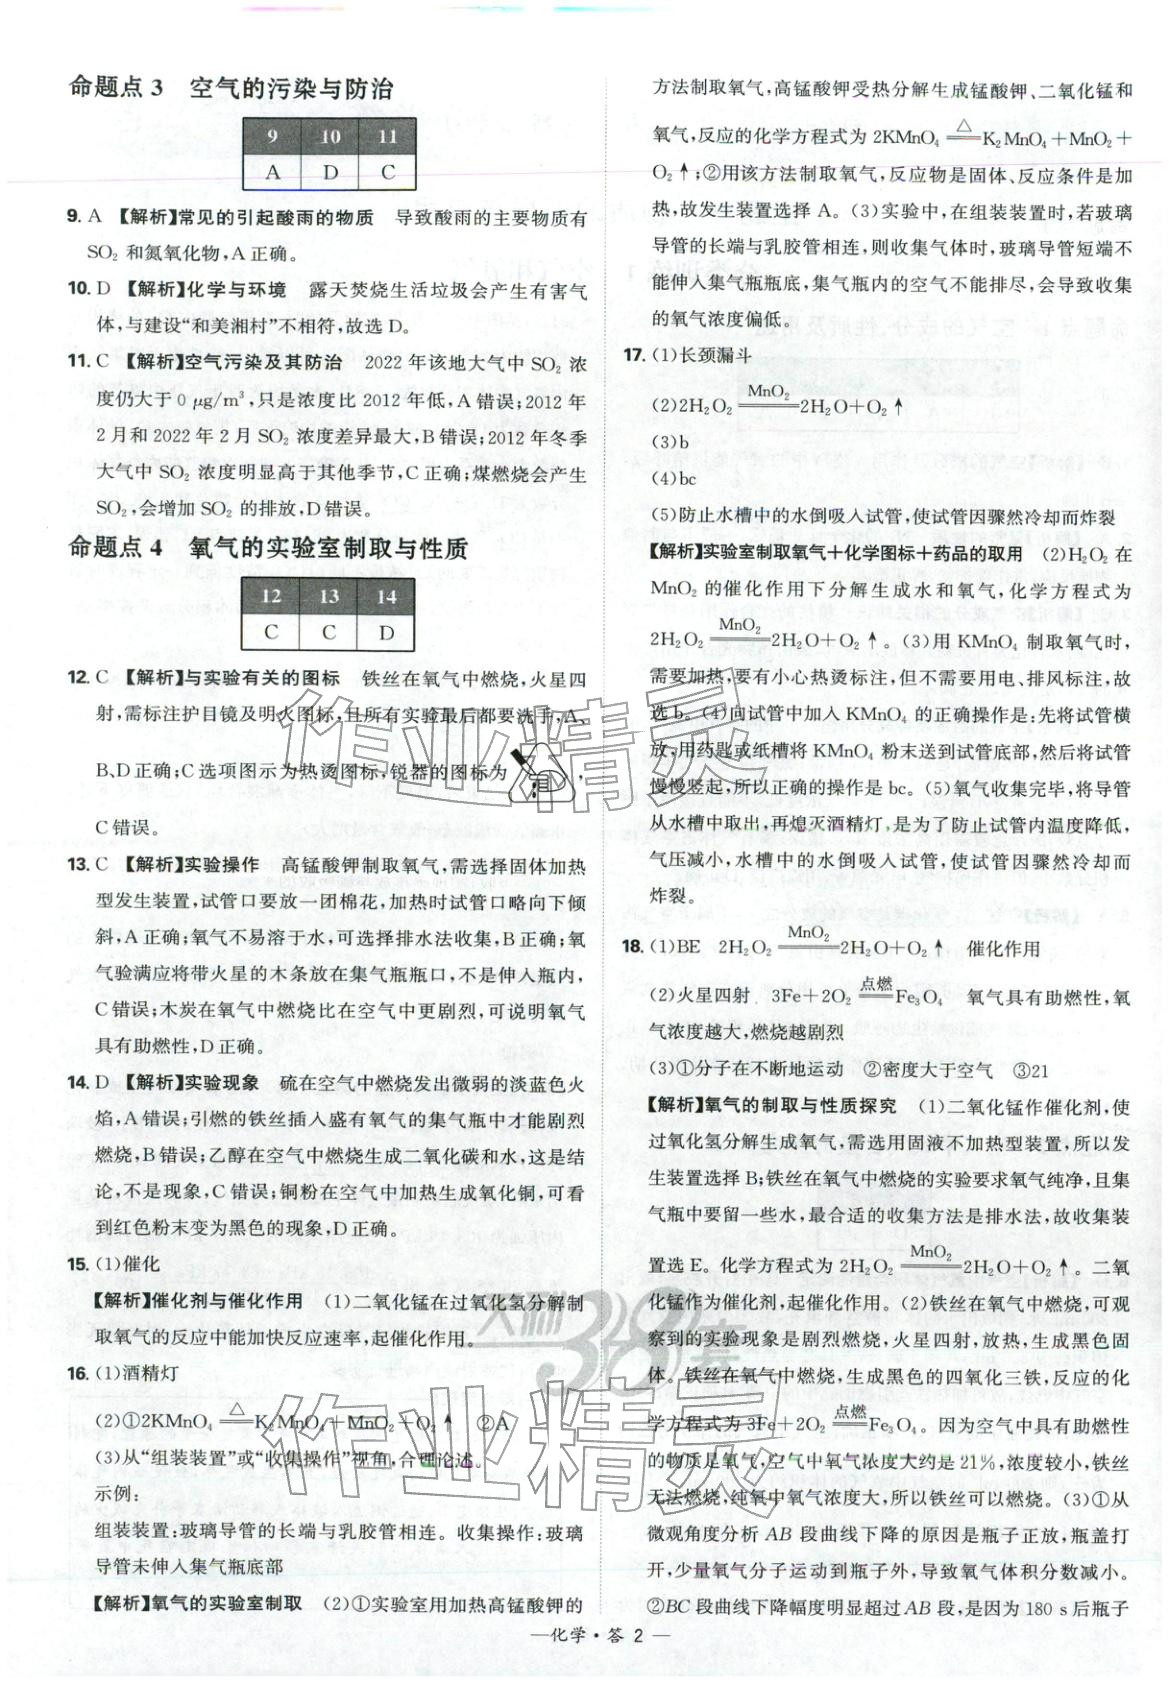 命题点 3 空气的污染与防治
9 10 11
A D C
9. A 【解析】常见的引起酸雨的物质 导致酸雨的主要物质有
SO₂ 和氮氧化物,A 正确。
10. D 【解析】化学与环境 露天焚烧生活垃圾会产生有害气
体,与建设“和美湘村”不相符,故选 D。
11. C 【解析】空气污染及其防治 2022 年该地大气中 SO₂ 浓
度仍大于 0 μg/m³,只是浓度比 2012 年低,A 错误;2012 年
2 月和 2022 年 2 月 SO₂ 浓度差异最大,B 错误;2012 年冬季
大气中 SO₂ 浓度明显高于其他季节,C 正确;煤燃烧会产生
SO₂,会增加 SO₂ 的排放,D 错误。
命题点 4 氧气的实验室制取与性质
12 13 14
C C D
12. C 【解析】与实验有关的图标 铁丝在氧气中燃烧,火星四
射,需标注护目镜及明火图标,且所有实验最后都要洗手,A、
B、D 正确;C 选项图示为热烫图标,锐器的图标为 ,
C 错误。
13. C 【解析】实验操作 高锰酸钾制取氧气,需选择固体加热
型发生装置,试管口要放一团棉花,加热时试管口略向下倾
斜,A 正确;氧气不易溶于水,可选择排水法收集,B 正确;氧
气验满应将带火星的木条放在集气瓶瓶口,不是伸入瓶内,
C 错误;木炭在氧气中燃烧比在空气中更剧烈,可说明氧气
具有助燃性,D 正确。
14. D 【解析】实验现象 硫在空气中燃烧发出微弱的淡蓝色火
焰,A 错误;引燃的铁丝插人盛有氧气的集气瓶中才能剧烈
燃烧,B 错误;乙醇在空气中燃烧生成二氧化碳和水,这是结
论,不是现象,C 错误;铜粉在空气中加热生成氧化铜,可看
到红色粉末变为黑色的现象,D 正确。
15. (1)催化
【解析】催化剂与催化作用 (1)二氧化锰在过氧化氢分解制
取氧气的反应中能加快反应速率,起催化作用。
16. (1)酒精灯
(2)①2KMnO₄ ≜ K₂MnO₄+MnO₂+O₂↑ ②A
(3)从“组装装置”或“收集操作”视角,合理论述。
示例:
组装装置:玻璃导管的长端与乳胶管相连。收集操作:玻璃
导管未伸入集气瓶底部
【解析】氧气的实验室制取 (2)①实验室用加热高锰酸钾的
方法制取氧气,高锰酸钾受热分解生成锰酸钾、二氧化锰和
氧气,反应的化学方程式为 2KMnO₄ ≜ K₂MnO₄+MnO₂+
O₂↑;②用该方法制取氧气,反应物是固体、反应条件是加
热,故发生装置选择 A。(3)实验中,在组装装置时,若玻璃
导管的长端与乳胶管相连,则收集气体时,玻璃导管短端不
能伸入集气瓶瓶底,集气瓶内的空气不能排尽,会导致收集
的氧气浓度偏低。
17. (1)长颈漏斗
(2)2H₂O₂ =MnO₂= 2H₂O+O₂↑
(3)b
(4)bc
(5)防止水槽中的水倒吸入试管,使试管因骤然冷却而炸裂
【解析】实验室制取氧气+化学图标+药品的取用 (2)H₂O₂ 在
MnO₂ 的催化作用下分解生成水和氧气,化学方程式为
2H₂O₂ =MnO₂= 2H₂O+O₂↑。(3)用 KMnO₄ 制取氧气时,
需要加热,要有小心热烫标注,但不需要用电、排风标注,故
选 b。(4)向试管中加人 KMnO₄ 的正确操作是:先将试管横
放,用药匙或纸槽将 KMnO₄ 粉末送到试管底部,然后将试管
慢慢竖起,所以正确的操作是 bc。(5)氧气收集完毕,将导管
从水槽中取出,再熄灭酒精灯,是为了防止试管内温度降低,
气压减小,水槽中的水倒吸入试管,使试管因骤然冷却而
炸裂。
18. (1)BE 2H₂O₂ =MnO₂= 2H₂O+O₂↑ 催化作用
(2)火星四射 3Fe+2O₂ =点燃= Fe₃O₄ 氧气具有助燃性,氧
气浓度越大,燃烧越剧烈
(3)①分子在不断地运动 ②密度大于空气 ③21
【解析】氧气的制取与性质探究 (1)二氧化锰作催化剂,使
过氧化氢分解生成氧气,需选用固液不加热型装置,所以发
生装置选择 B;铁丝在氧气中燃烧的实验要求氧气纯净,且集
气瓶中要留一些水,最合适的收集方法是排水法,故收集装
置选 E。化学方程式为 2H₂O₂ =MnO₂= 2H₂O+O₂↑。二氧
化锰作为催化剂,起催化作用。(2)铁丝在氧气中燃烧,可观
察到的实验现象是剧烈燃烧,火星四射,放热,生成黑色固
体。铁丝在氧气中燃烧,生成黑色的四氧化三铁,反应的化
学方程式为 3Fe+2O₂ =点燃= Fe₃O₄。因为空气中具有助燃性
的物质是氧气,空气中氧气浓度大约是 21%,浓度较小,铁丝
无法燃烧,纯氧中氧气浓度大,所以铁丝可以燃烧。(3)①从
微观角度分析 AB 段曲线下降的原因是瓶子正放,瓶盖打
开,少量氧气分子运动到瓶子外,导致氧气体积分数减小。
②BC 段曲线下降幅度明显超过 AB 段,是因为 180 s 后瓶子
—化学·答 2—
作业精灵
天利38套
作业精灵